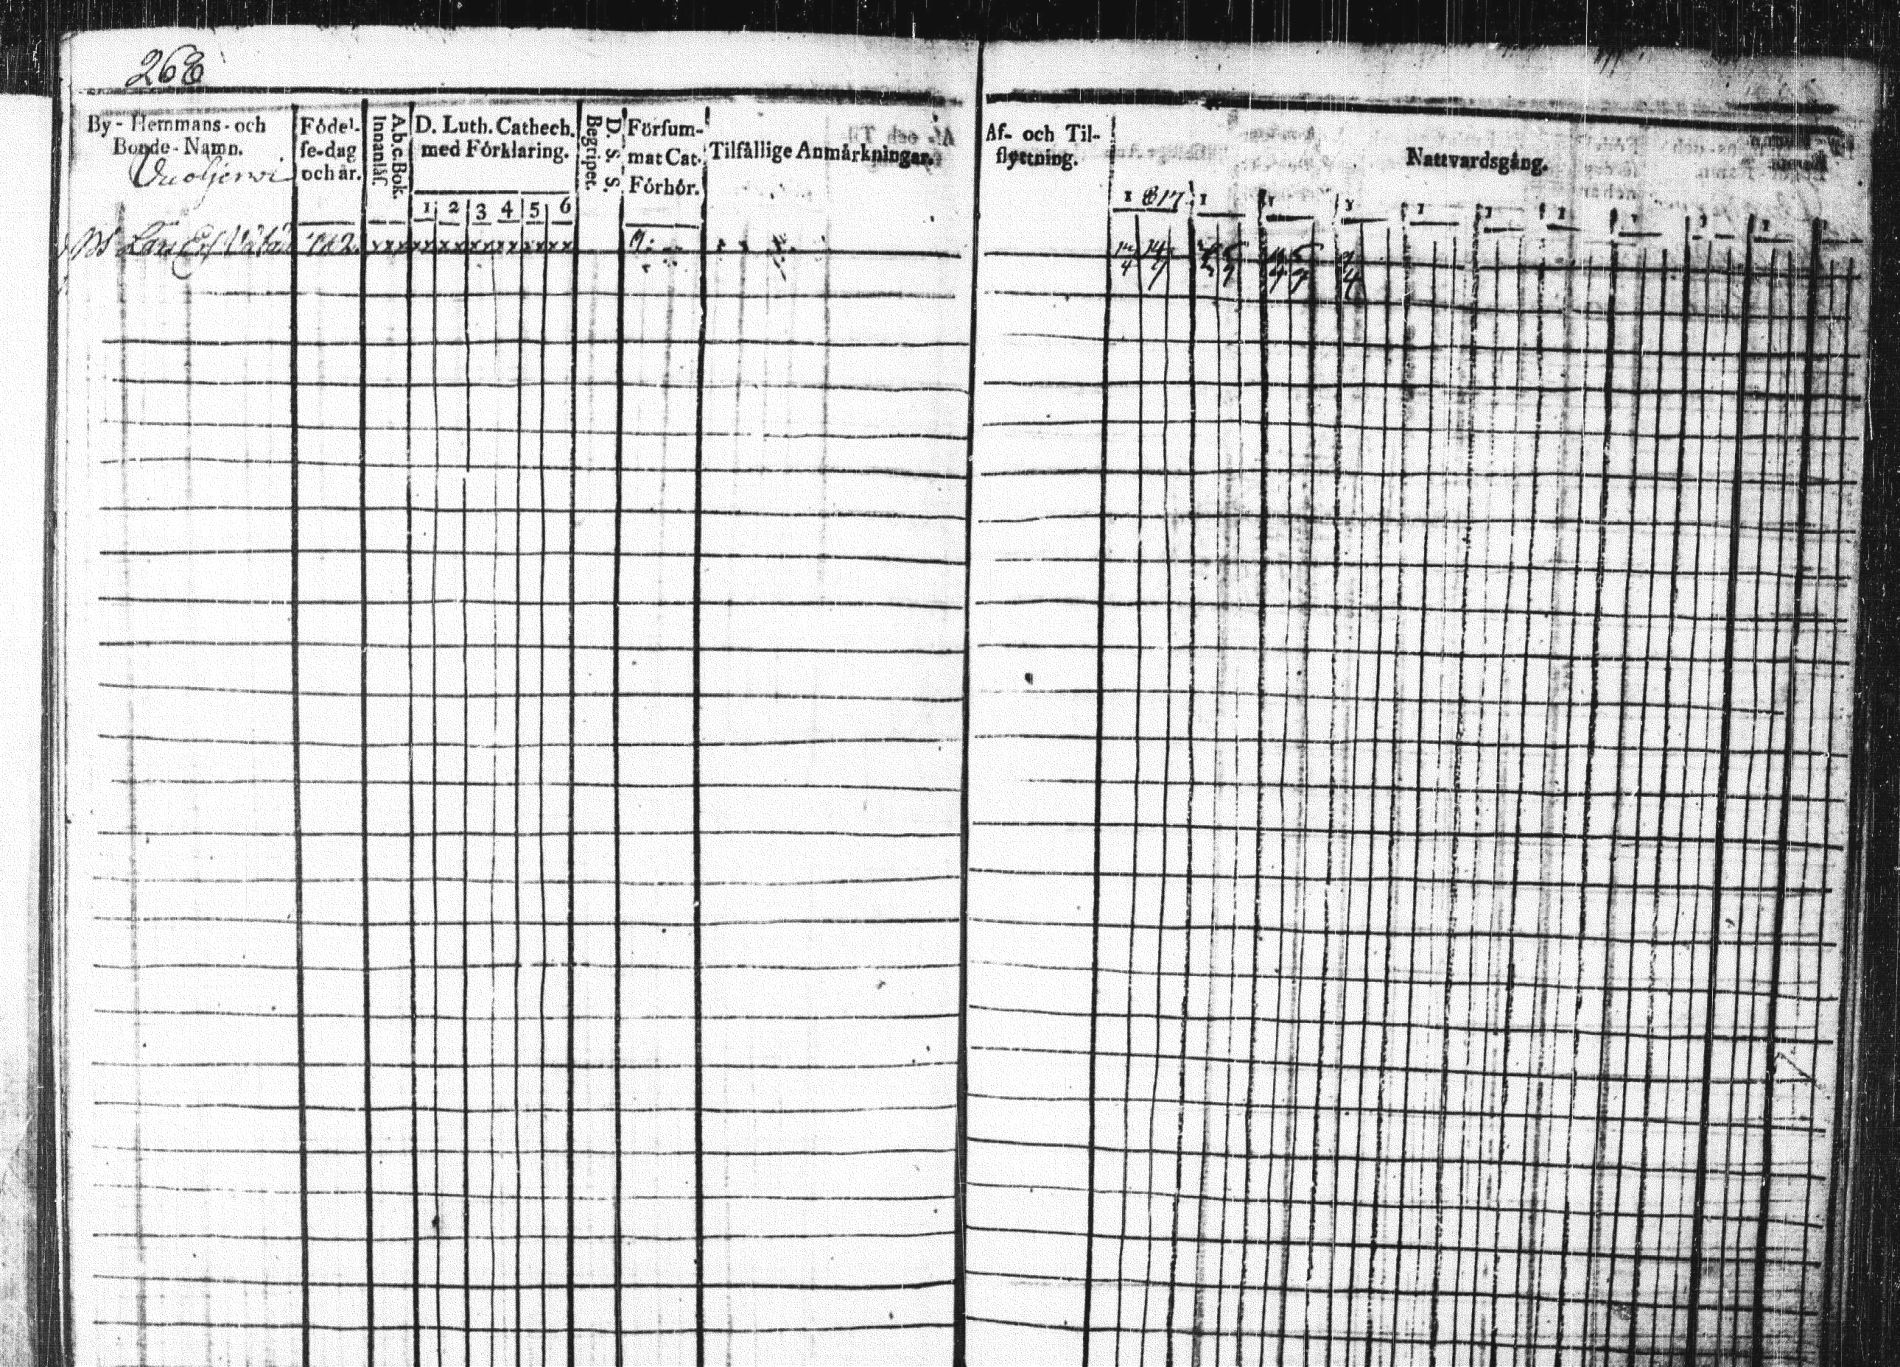 268
By- Hemmans- och
Bonde- Namn.
Vuoljerwi
Födel-
se-dag
och år.
A.b.c.Bok.
Innanläs.
D. Luth. Cathech.
med Förklaring.
1 2 3 4 5 6
D. S. S.
Begripet.
Försum-
mat Cat.
Förhör.
Tilfällige Anmärkningar.
Af- och Til-
flyttning.
Nattvardsgång.
1817 1 1 1 1 1 1 1 1 1 1
Lars x x x x x x x x x x x x x x